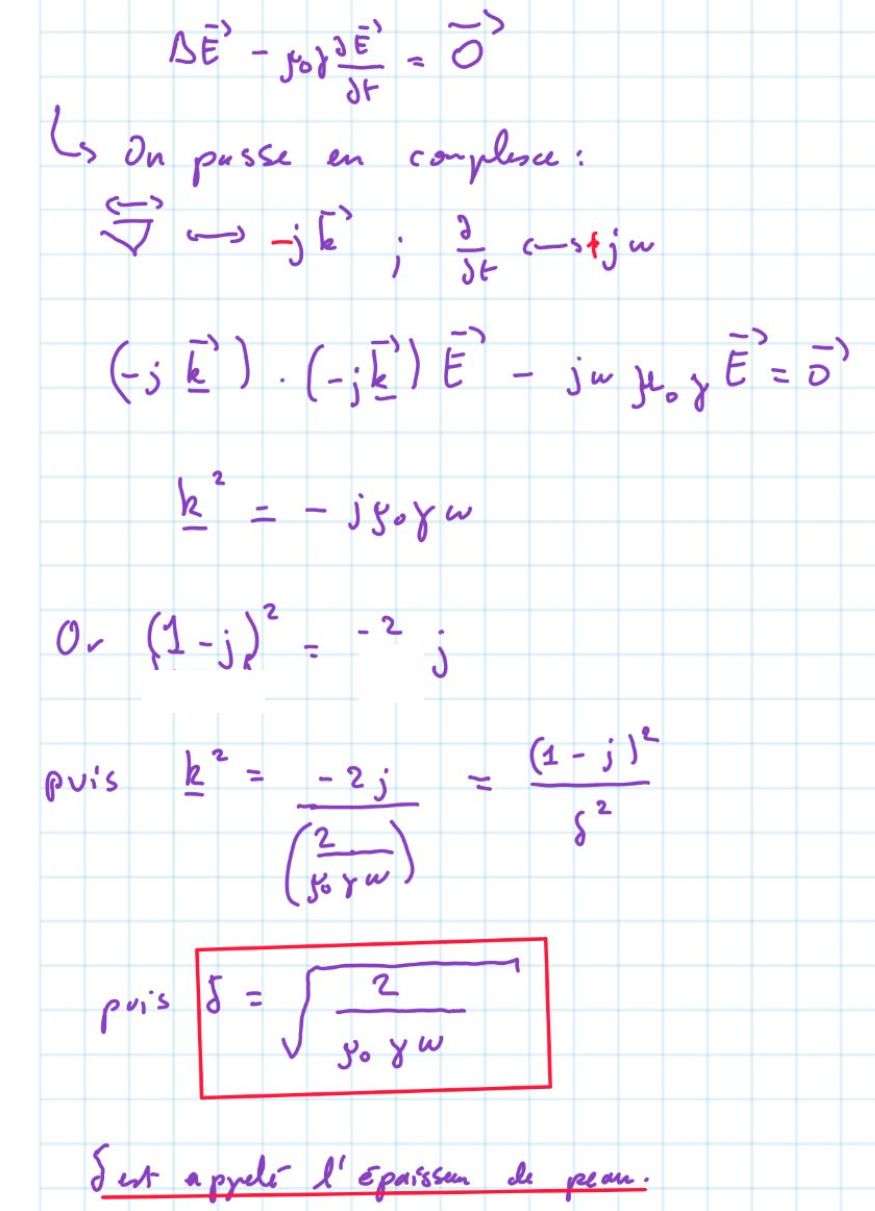 ΔE⃗ - μ₀γ ∂E⃗/∂t = 0⃗
↳ On passe en complexe :
∇⃗ ↔ -jk⃗ ; ∂/∂t ↔ +jω
(-j k⃗) · (-j k⃗) E⃗ - jω μ₀ γ E⃗ = 0⃗
k² = - jμ₀γω
Or (1-j)² = -2 j
puis k² = -2j / (2/(μ₀γω)) = (1-j)²/δ²
puis δ = √(2/(μ₀γω))
δ est appelé l'épaisseur de peau.